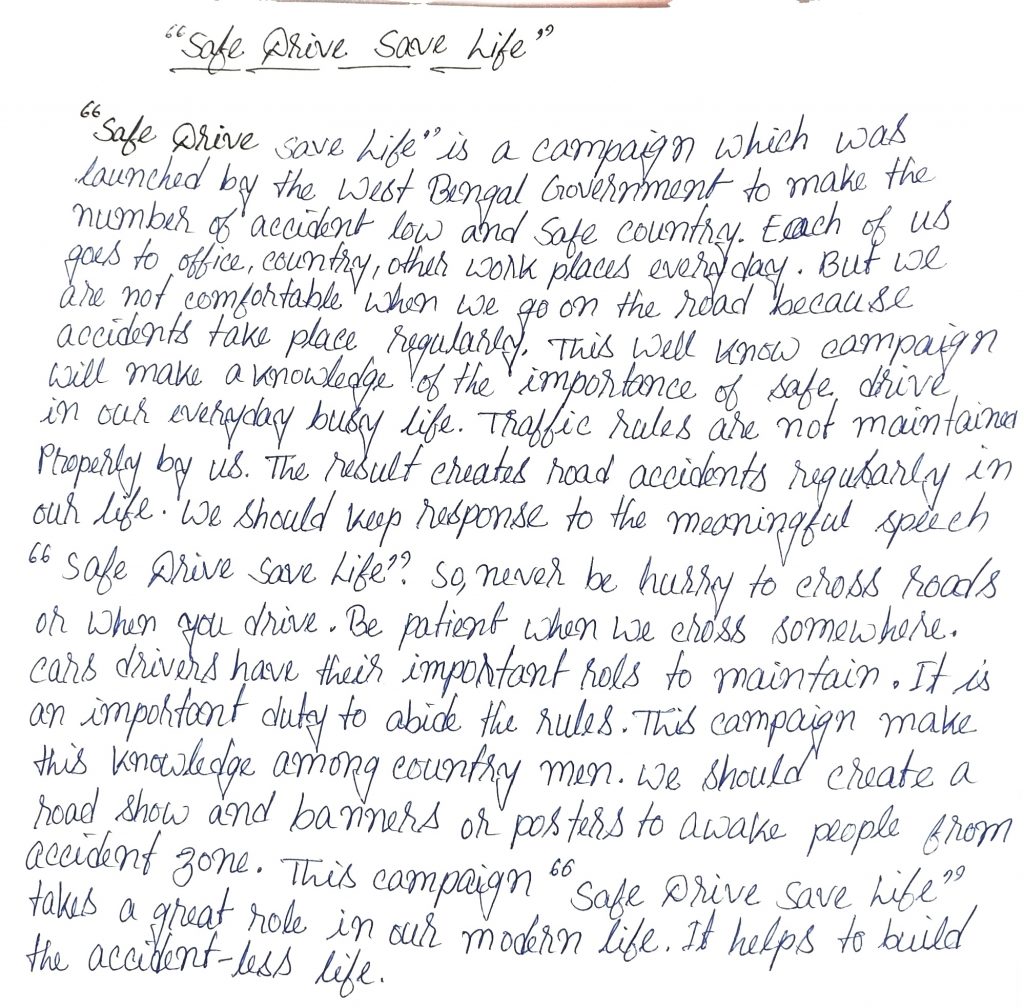 "Safe Drive Save Life"
"Safe Drive save Life" is a campaign which was
launched by the West Bengal Government to make the
number of accident low and safe country. Each of us
goes to office, country, other work places everyday. But we
are not comfortable when we go on the road because
accidents take place regularly. This well know campaign
will make a knowledge of the importance of safe drive
in our everyday busy life. Traffic rules are not maintained
Properly by us. The result creates road accidents regularly in
our life. We should keep response to the meaningful speech
"Safe Drive Save Life". So, never be hurry to cross roads
or when you drive. Be patient when we cross somewhere.
cars drivers have their important rols to maintain. It is
an important duty to abide the rules. This campaign make
this knowledge among country men. We should create a
road show and banners or posters to awake people from
accident zone. This campaign "Safe Drive Save Life"
takes a great role in our modern life. It helps to build
the accident-less life.